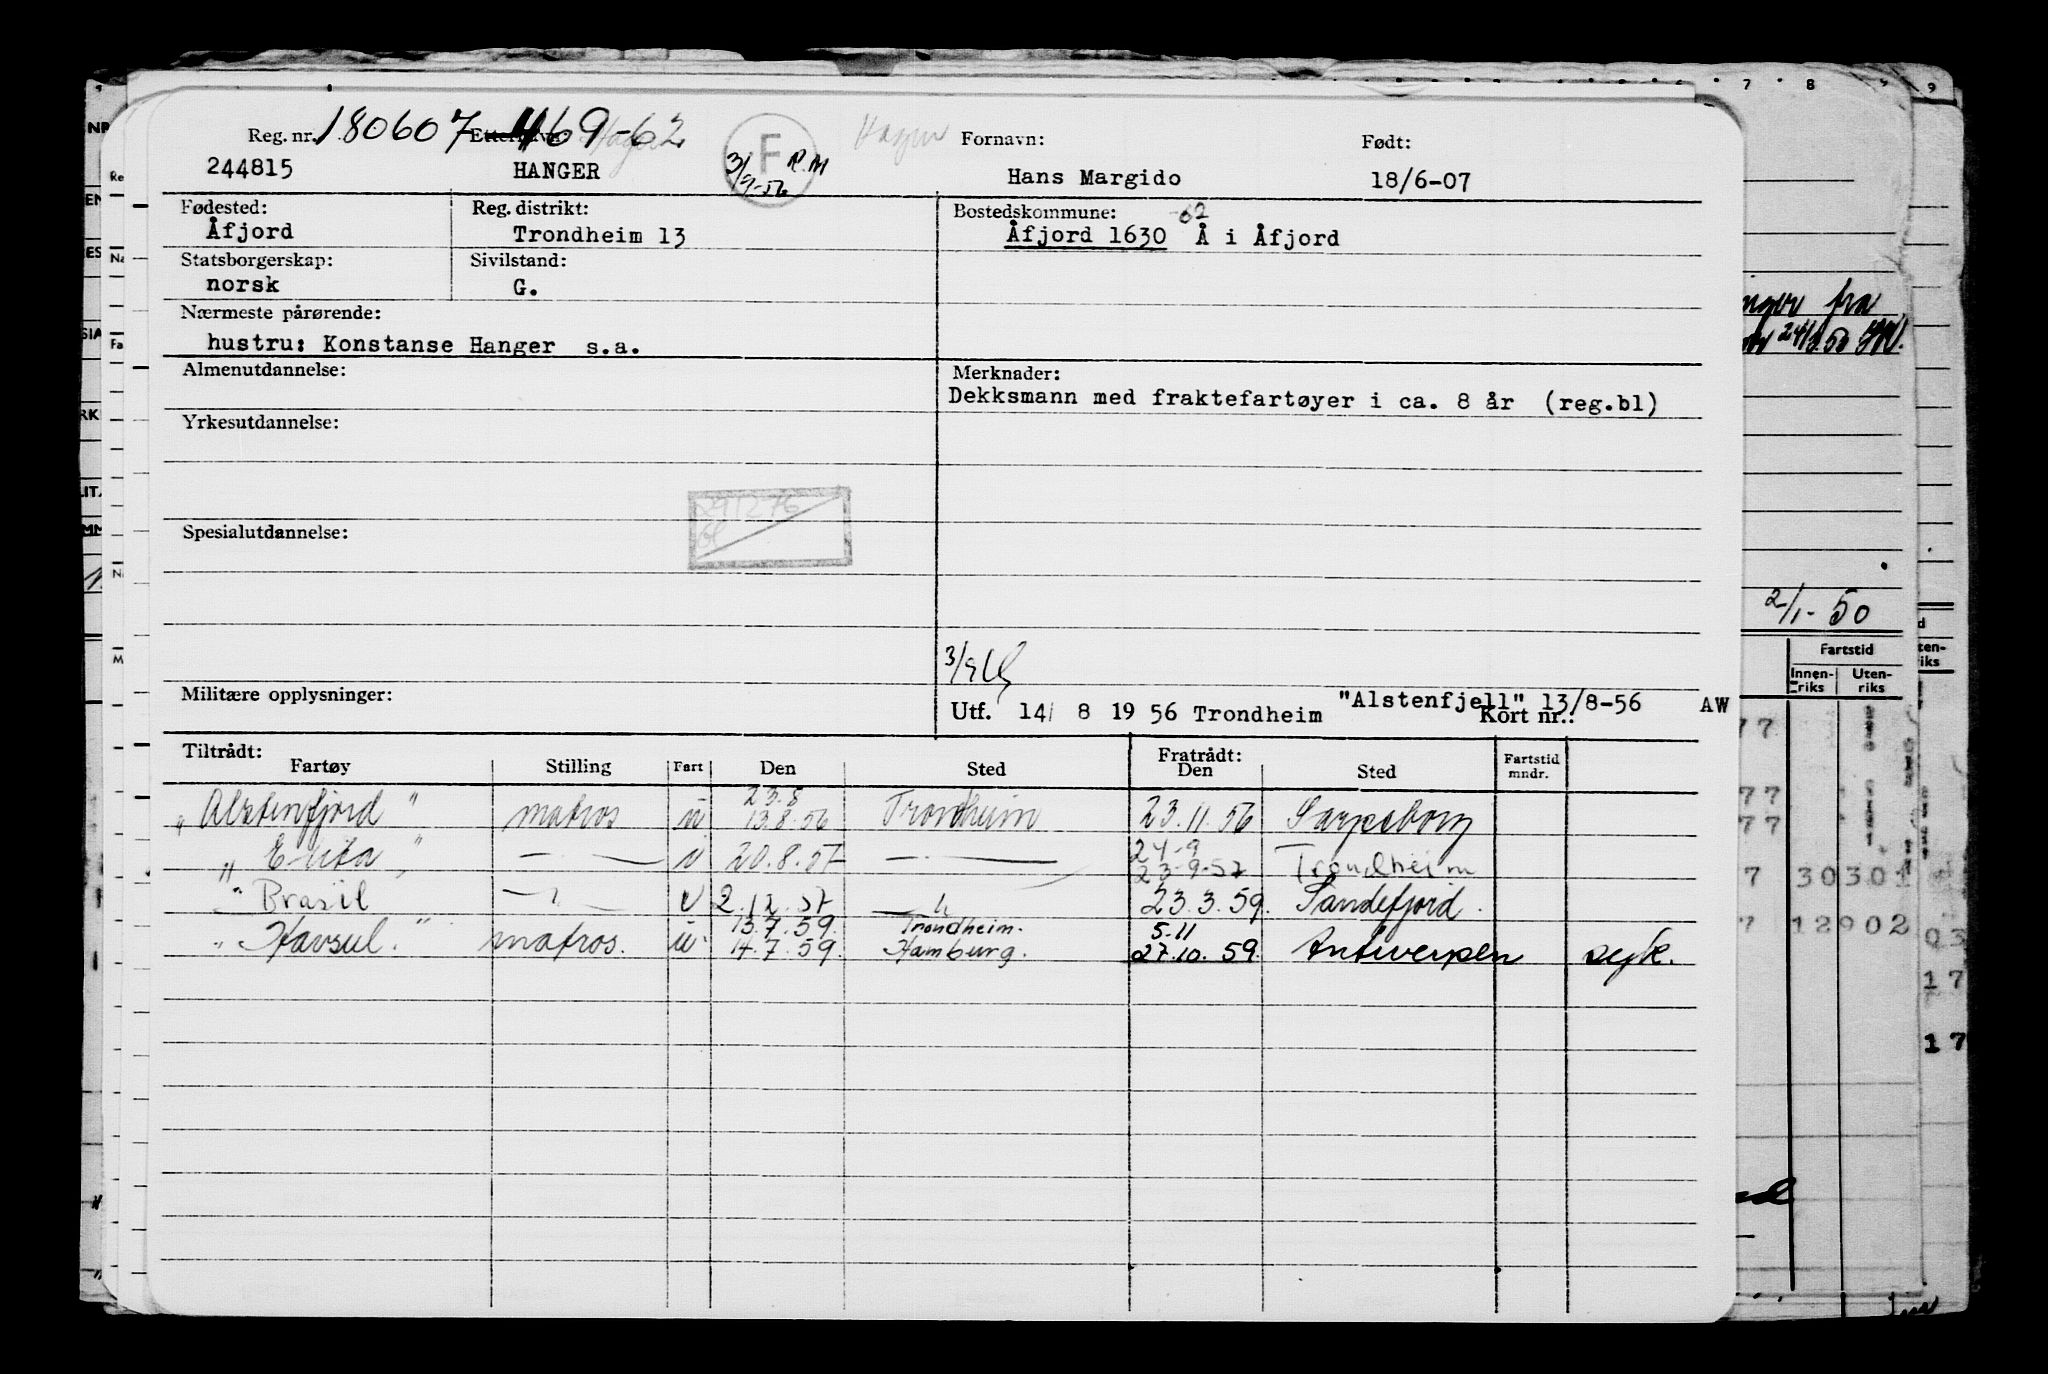 Reg. nr. 180607 469-62 Etternavn: Fornavn: Født:
244815 HANGER Hagen F 3/9-56 R.M Hans Margido 18/6-07
Fødested: Reg. distrikt: Bostedskommune: -62
Åfjord Trondheim 13 Åfjord 1630 Å i Åfjord
Statsborgerskap: Sivilstand:
norsk G.
Nærmeste pårørende:
hustru: Konstanse Hanger s.a.
Almenutdannelse: Merknader:
Dekksmann med fraktefartøyer i ca. 8 år (reg.bl)
Yrkesutdannelse:
291276
Spesialutdannelse:
3/9
Militære opplysninger: "Alstenfjell" 13/8-56 AW
Utf. 14/ 8 19 56 Trondheim Kort nr.:
Tiltrådt: Fratrådt:
Fartøy Stilling Fart Den Sted Den Sted Fartstid mndr.
23.8
"Alstenfjord" matros u 13.8.56 Trondheim 23.11.56 Sarpsborg
24-9
"Erita" — " — u 20.8.57 — " — 23-9-57 Trondheim
"Brasil — " — u 2.12.57 — " — 23.3.59. Sandefjord.
13.7.59. Trondheim. 5.11
"Havsul." matros. u. 14.7.59. Hamburg. 27.10.59. Antwerpen syk.
7 8 9 9
fra
24/3.50
2/1-50
Fartstid
Innen-riks Uten-riks
77
77
77
7 30301
7 12902
03
17
17